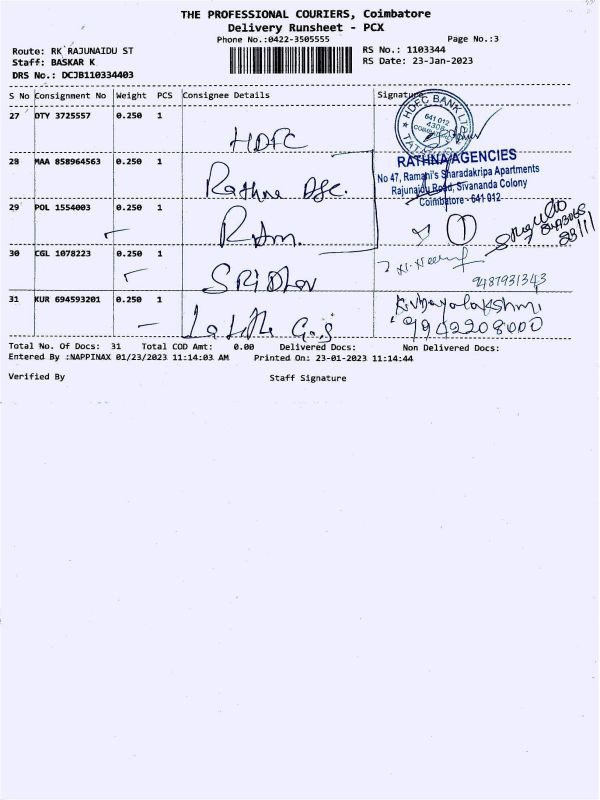 THE PROFESSIONAL COURIERS, Coimbatore
Delivery Runsheet - PCX
Phone No.:0422-3505555
Page No.:3
Route: RK RAJUNAIDU ST
RS No.: 1103344
Staff: BASKAR K
RS Date: 23-Jan-2023
DRS No.: DCJB110334403
S No Consignment No Weight PCS Consignee Details Signature
27 DTY 3725557 0.250 1 HDFC
HDFC BANK LTD
641 012
28 MAA 858964563 0.250 1 Rathna
RATHNA AGENCIES
No 47, Ramani's Sharadakripa Apartments
Rajunaidu Road, Sivananda Colony
Coimbatore - 641 012
29 POL 1554003 0.250 1 Ram.
1
30 CGL 1078223 0.250 1 SRIDhar
9487931343
31 KUR 694593201 0.250 1 Lalitha
K.Vijayalakshmi
9942208000
Total No. Of Docs: 31 Total COD Amt: 0.00 Delivered Docs: Non Delivered Docs:
Entered By :NAPPINAX 01/23/2023 11:14:03 AM Printed On: 23-01-2023 11:14:44
Verified By Staff Signature